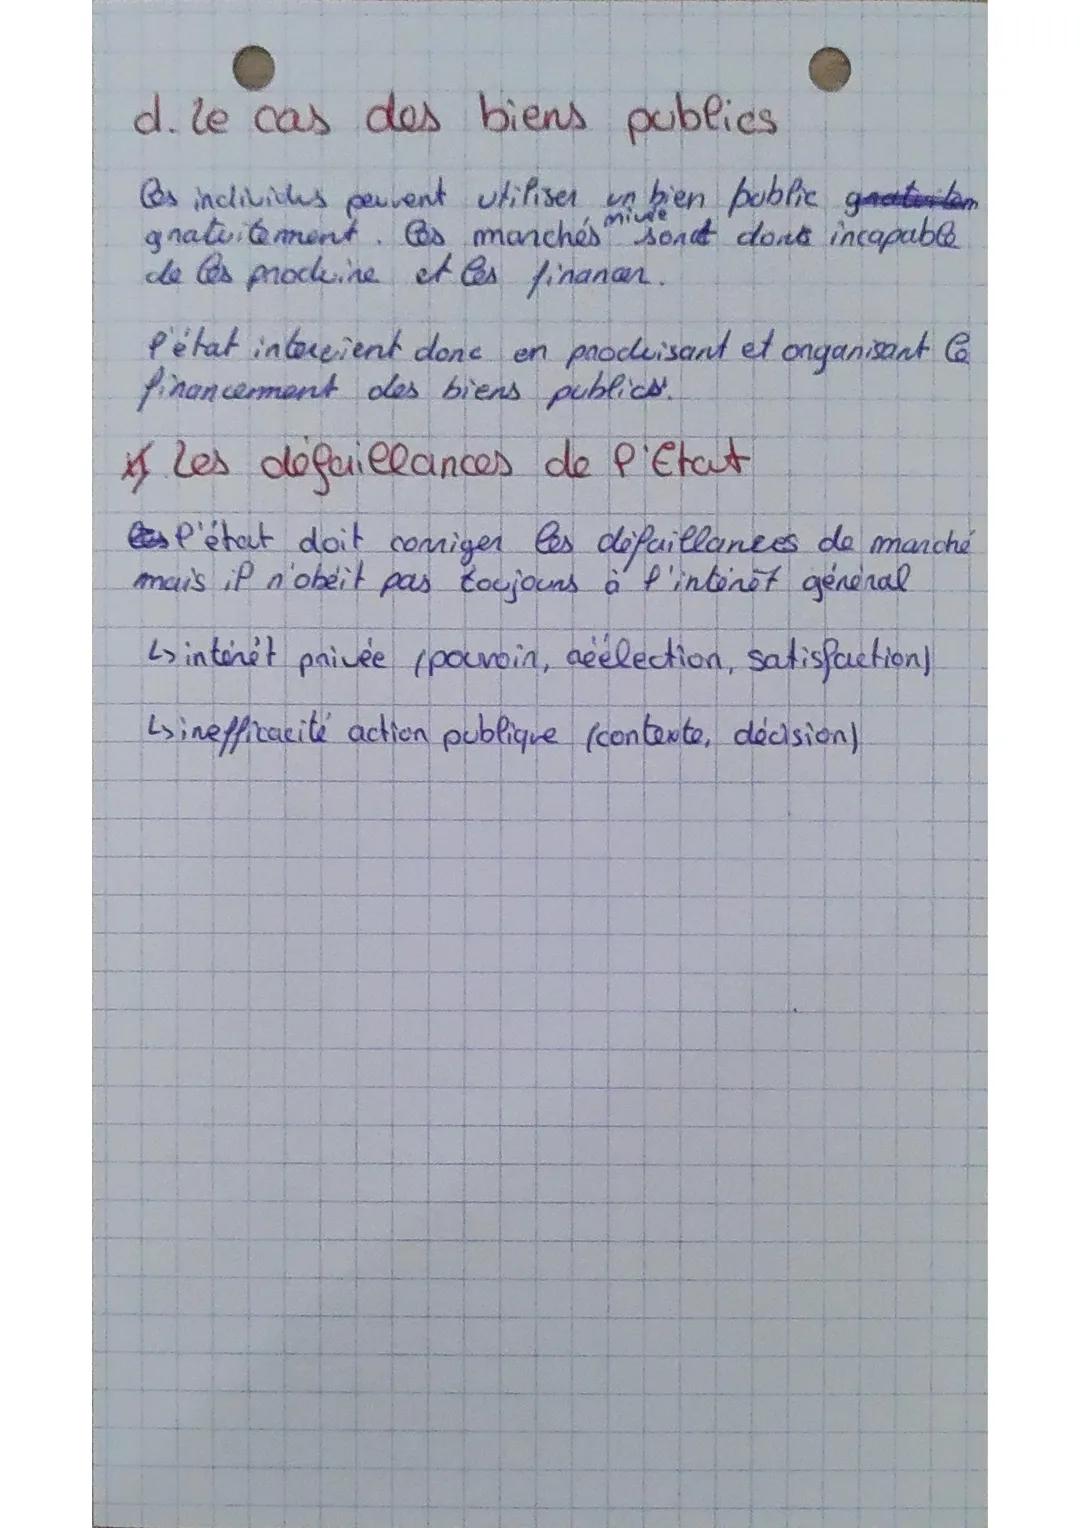 d. le cas des biens publics
les individus peuvent utiliser un bien public
gratuitement. les marchés sont donc incapable
de les produire et les financer.
l'état intervient donc en produisant et organisant le
financerment des biens publics.
Les défaillances de l'Etat
l'état doit corriger les défaillances de marché
mais il n'obéit pas toujours à l'intérêt général
↳ intérêt privée (pouvoir, réélection, satisfaction)
↳ inefficacité action publique (contexte, décision)